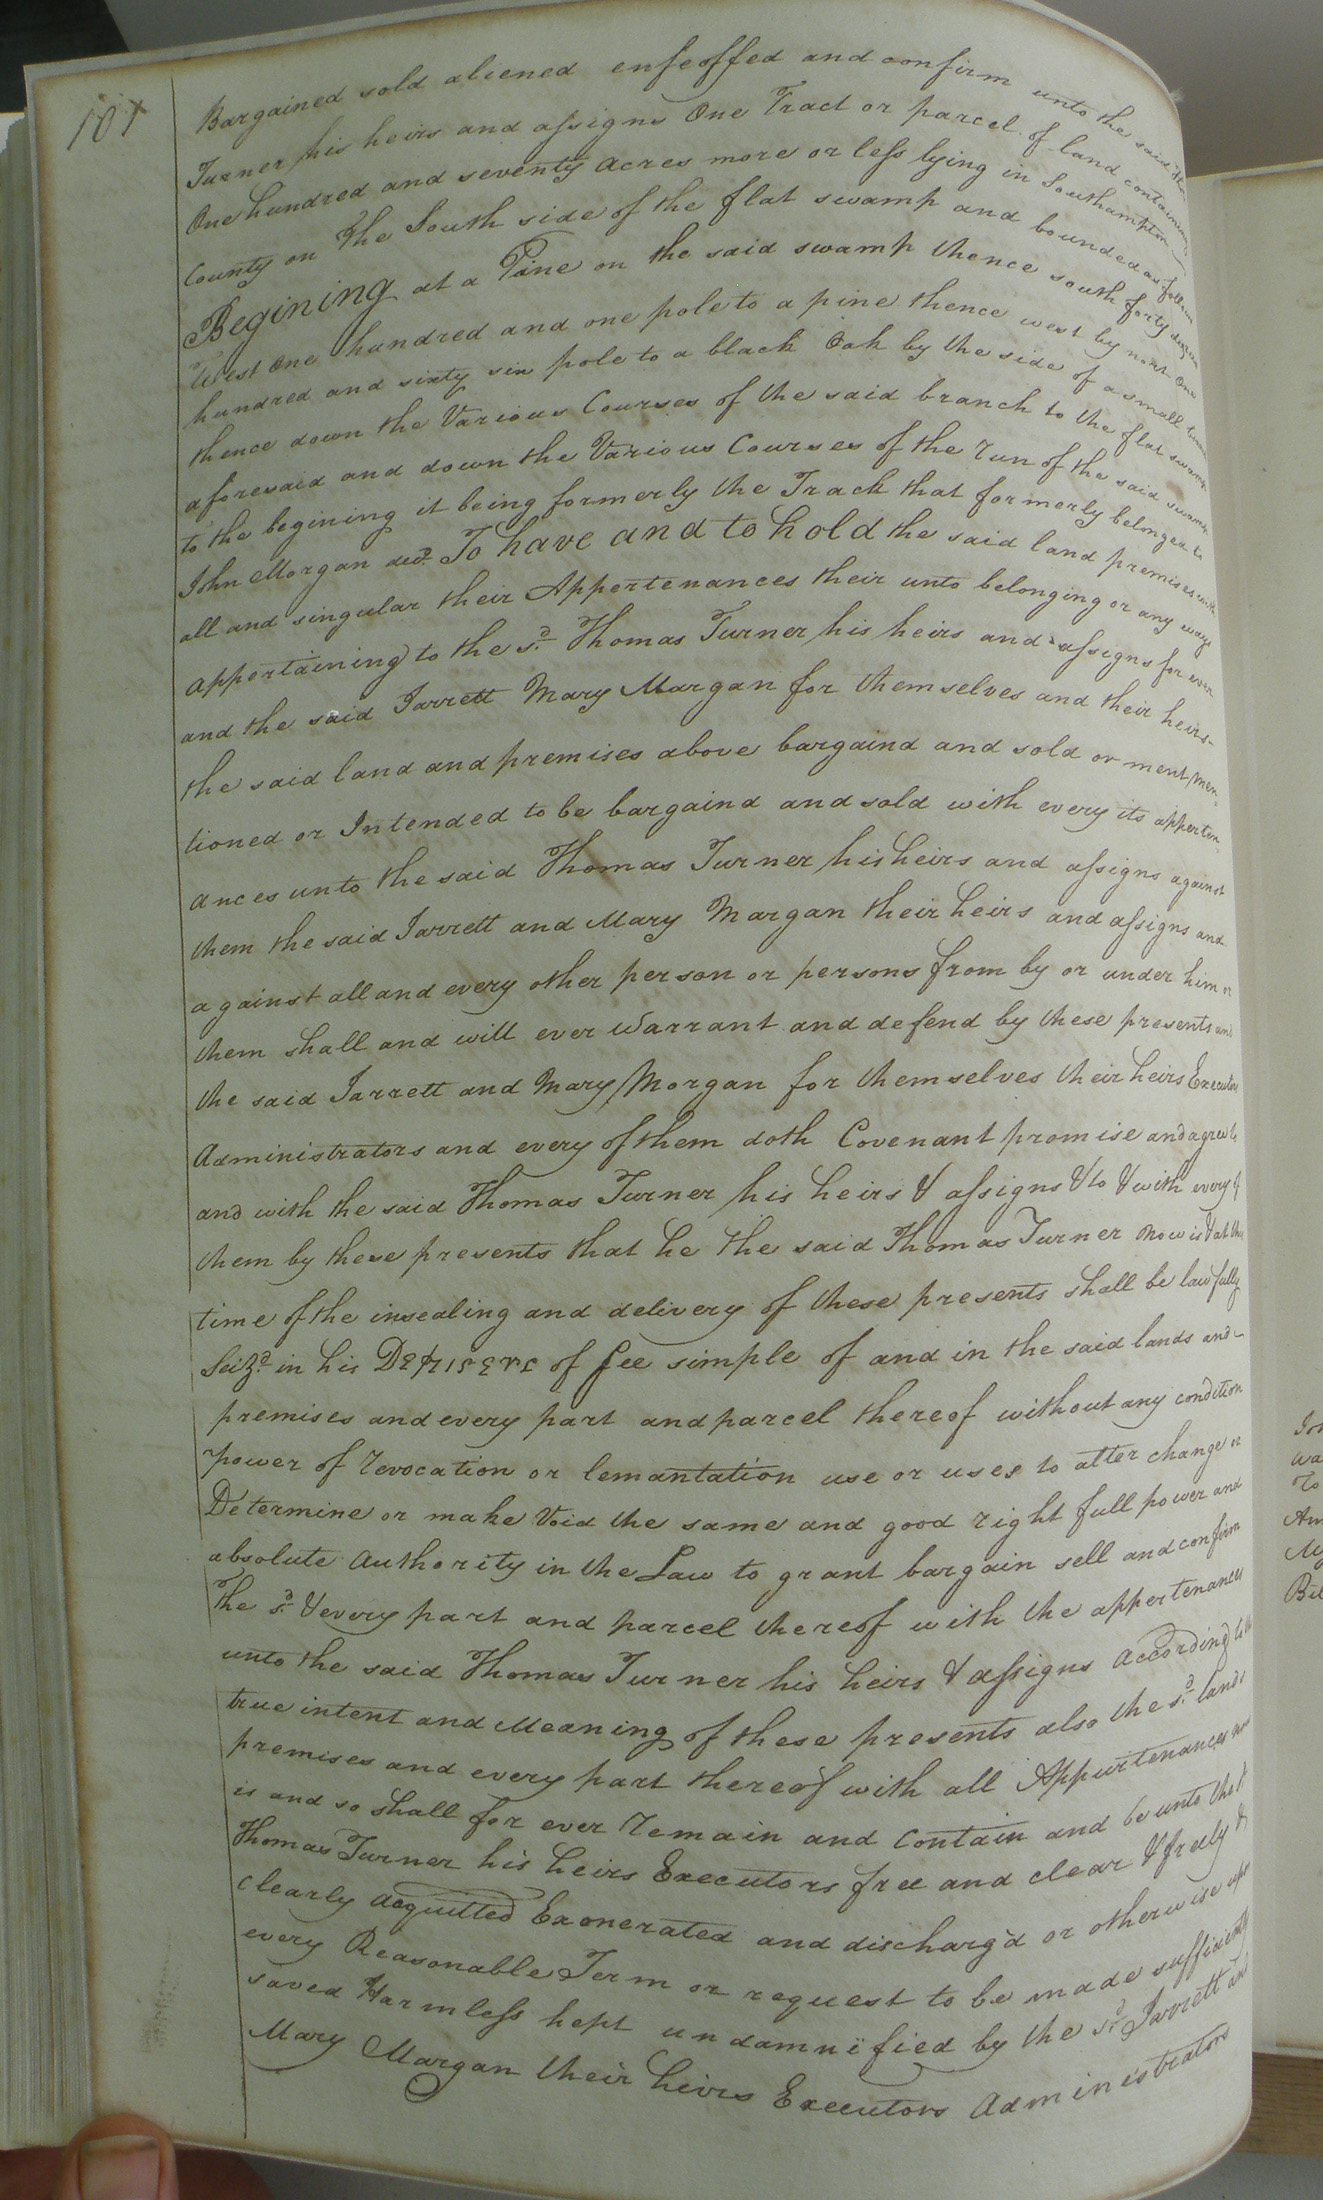 107
Bargained sold aliened enfeoffed and confirm unto the said Tho
Turner his heirs and assigns One Tract or parcel of land containing
One hundred and seventy acres more or less lying in Southampton
County on The South side of the flat swamp and bounded as follow
Begining at a Pine on the said swamp thence south forty degrees
West one hundred and one pole to a pine thence west by nort One
hundred and sixty six pole to a black Oak by the side of a small
thence down the Various Courses of the said branch to the flat swamp
aforesaid and down the Various Courses of the run of the said swamp
to the begining it being formerly the Track that formerly belonged to
John Morgan decd. To have and to hold the said land premises with
all and singular their Appertenances their unto belonging or any ways
appertaining to the sd. Thomas Turner his heirs and assigns for ever
and the said Jarrett Mary Margan for themselves and their heirs
the said land and premises above bargaind and sold or ment men
tioned or Intended to be bargaind and sold with every its apperten
ances unto the said Thomas Turner his heirs and assigns against
them the said Jarrett and Mary Margan their heirs and assigns and
against all and every other person or persons from by or under him or
them shall and will ever Warrant and defend by these presents and
the said Jarrett and Mary Morgan for themselves their heirs Executors
Administrators and every of them doth Covenant promise and agree to
and with the said Thomas Turner his heirs & assigns & to & with every of
them by these presents that he the said Thomas Turner now is & at the
time of the insealing and delivery of these presents shall be lawfully
Seizd. in his of fee simple of and in the said lands and
premises and every part and parcel thereof without any condition
power of revocation or lemantation use or uses to alter change or
Determine or make Void the same and good right full power and
absolute authority in the Law to grant bargain sell and confirm
The sd. & every part and parcel thereof with the appertenances
unto the said Thomas Turner his heirs & assigns according to the
true intent and Meaning of these presents also the sd. lands
premises and every part thereof with all Appurtenances now
is and so shall for ever remain and Contain and be unto the sd
Thomas Turner his heirs Executors free and clear & freely &
clearly acquitted Exonerated and discharg'd or otherwise upon
every Reasonable Term or request to be made sufficiently
saved Harmless kept undamnified by the sd. Jarrett and
Mary Margan their heirs Executors Administrators